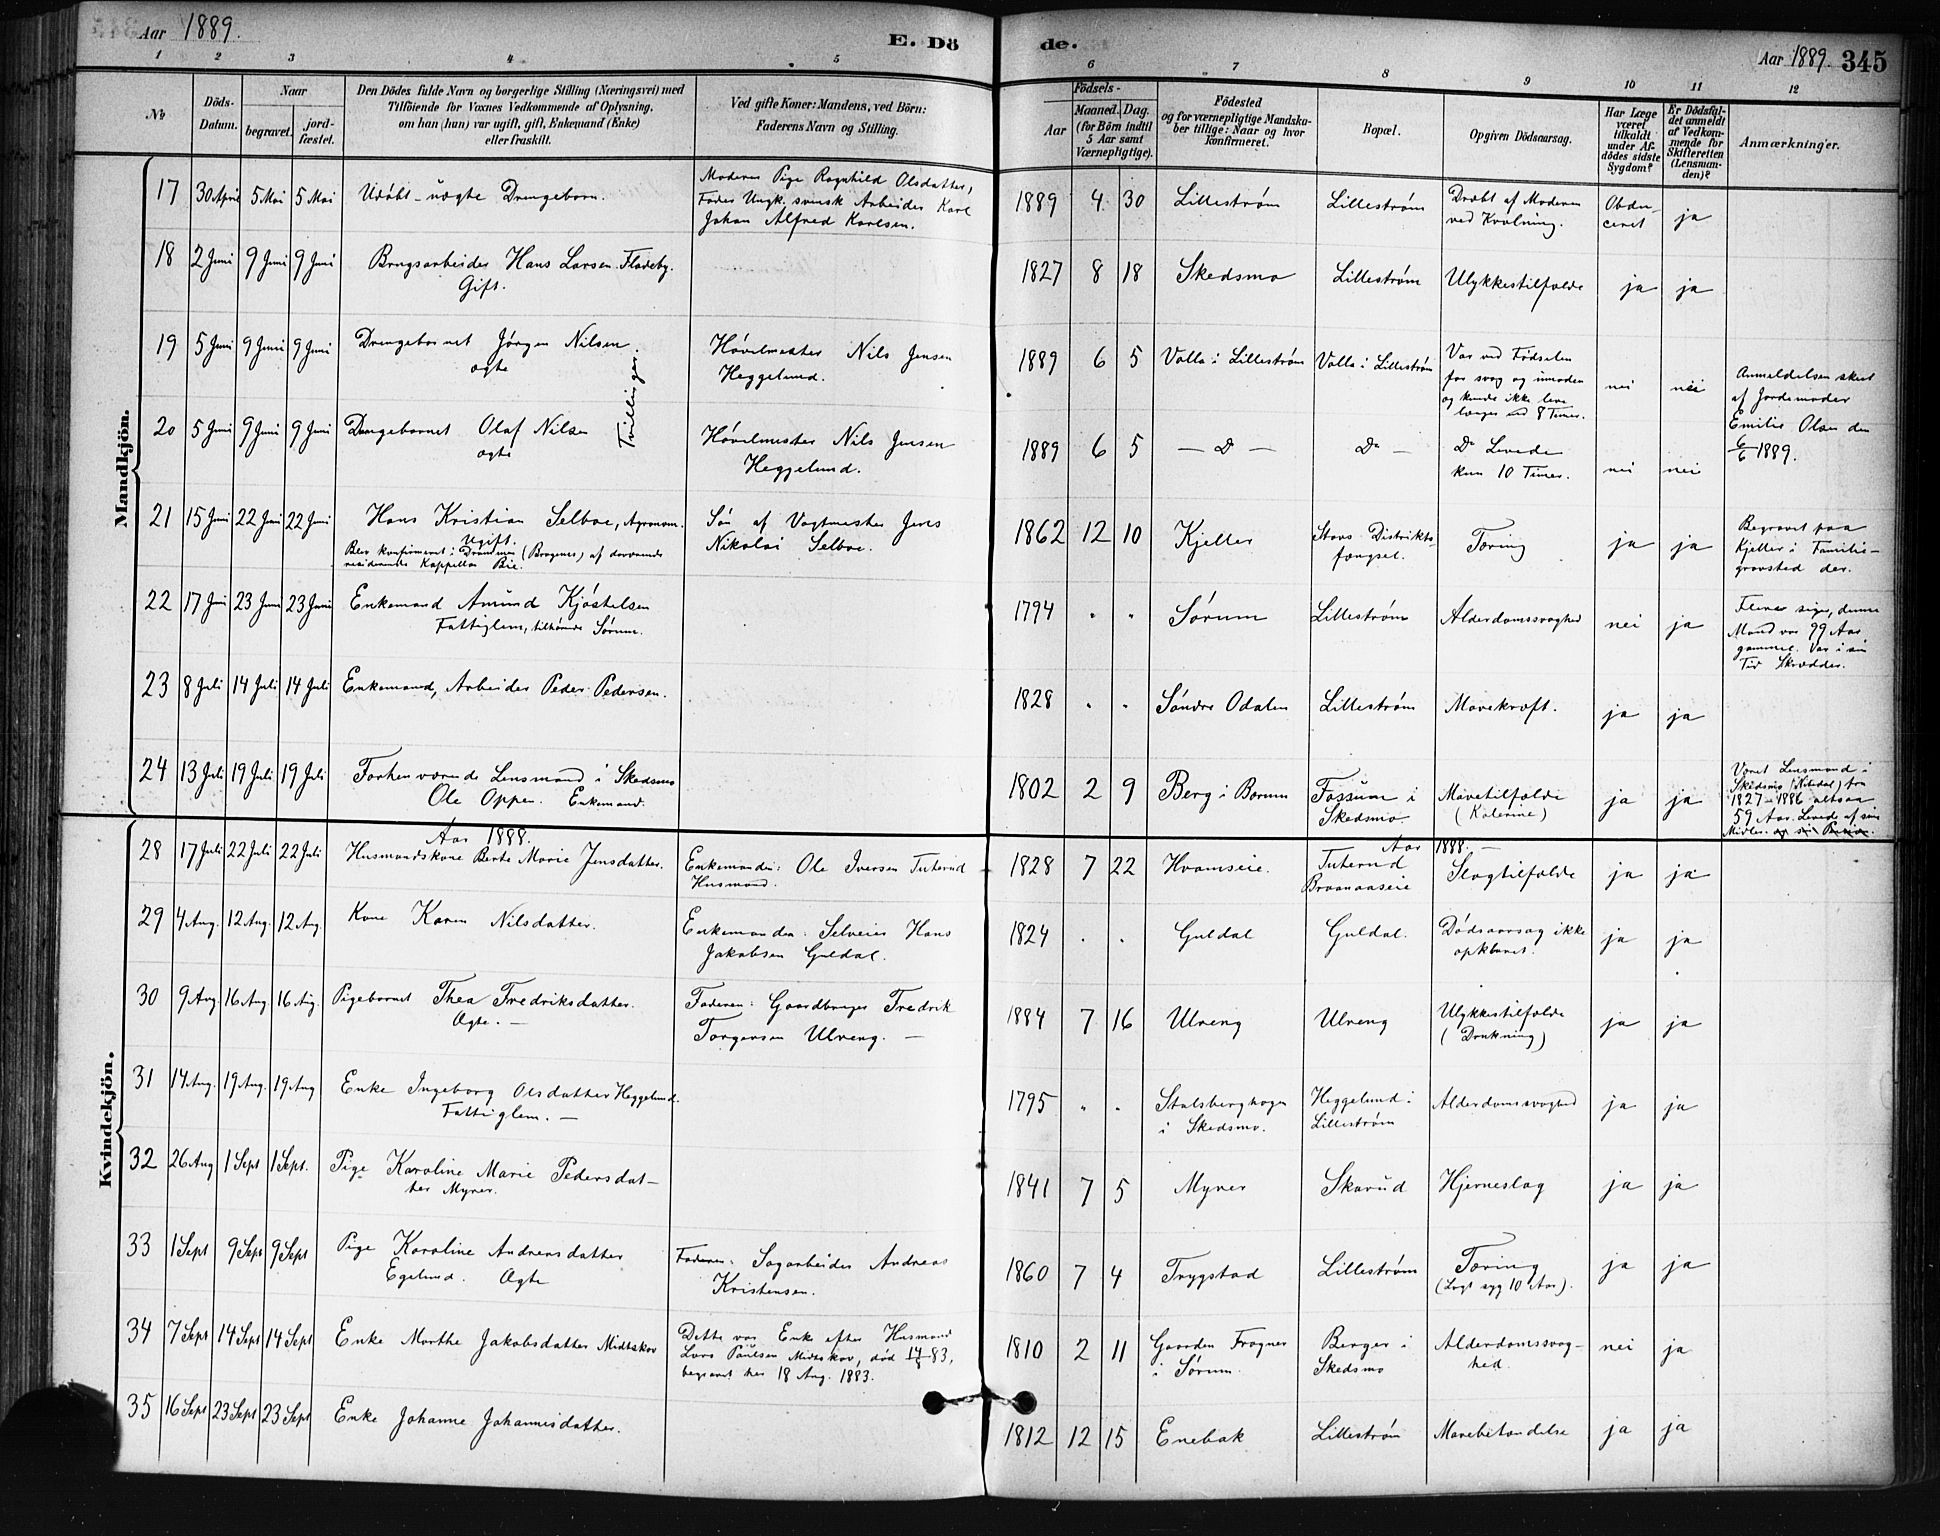 Aar 1889.
E. Dö de.
Aar 1889. 345
1 2 3 4 5 6 7 8 9 10 11 12
No
Döds-Datum.
Naar
begravet. jordfæstet.
Den Dödes fulde Navn og borgerlige Stilling (Næringsvei) med
Tilföiende for Voxnes Vedkommende af Oplysning,
om han (hun) var ugift, gift, Enkemand (Enke)
eller fraskilt.
Ved gifte Koner: Mandens, ved Börn:
Faderens Navn og Stilling.
Födsels-
Aar Maaned. Dag.
(for Börn indtil
5 Aar samt
Værnepligtige).
Födested
og for værnepligtige Mandska-
ber tillige: Naar og hvor
konfirmeret.
Bopæl.
Opgiven Dödsaarsag.
Har Læge
været
tilkaldt
under Af-
dödes sidste
Sygdom?
Er Dödsfal-
det anmeldt
af Vedkom-
mende for
Skifteretten
(Lensman-
den)?
Anmærkninger.
Mandkjön.
17 30 April 5 Mai 5 Mai Udøbt uægte Drengebarn. Moderen Pige Ragnhild Olsdatter,
Fader Ungk. svensk Arbeider Karl
Johan Alfred Karlsen.
1889 4 30 Lillestrøm Lillestrøm Dræbt af Moderen
ved Kvælning. Obdu-
ceret ja
18 2 Juni 9 Juni 9 Juni Brugsarbeider Hans Larsen Fladeby.
Gift.
1827 8 18 Skedsmo Lillestrøm Ulykkestilfælde ja ja
19 5 Juni 9 Juni 9 Juni Drengebarnet Jørgen Nilsen.
ægte
Tvillinger
Høvelmester Nils Jensen
Heggelund.
1889 6 5 Volla i Lillestrøm Volla i Lillestrøm Var ved Fødselen
for svag og umoden
og kunde ikke leve
længer end 8 Timer. nei nei
Anmeldelsen skeet
af Jordemoder
Emilie Olsen den
6/6 1889.
20 5 Juni 9 Juni 9 Juni Drengebarnet Olaf Nilsen
ægte
Høvelmester Nils Jensen
Heggelund.
1889 6 5 — Do — Do — Do Levede
kun 10 Timer. nei nei
21 15 Juni 22 Juni 22 Juni Hans Kristian Selboe, Agronom.
Ugift.
Blev konfirmeret i Drammen (Bragenes) af daværende
residerende Kappellan Bie.
Søn af Vagtmester Jens
Nikolai Selboe.
1862 12 10 Kjeller Stavs Distrikts-
fængsel. Tæring ja ja
Begravet paa
Kjeller i Familie-
gravsted der.
22 17 Juni 23 Juni 23 Juni Enkemand Amund Kjøstelsen
Fattiglem, tilhørende Sørum.
1794 " " Sørum Lillestrøm Alderdomssvaghed nei ja
Flere sige, denne
Mand var 99 Aar
gammel. Var i sin
Tid Skrædder.
23 8 Juli 14 Juli 14 Juli Enkemand, Arbeider Peder Pedersen.
1828 " " Søndre Odalen Lillestrøm Mavekræft. ja ja
24 13 Juli 19 Juli 19 Juli Forhenværende Lensmand i Skedsmo
Ole Oppen. Enkemand.
1802 2 9 Berg i Bærum Fossum i
Skedsmo. Mavetilfælde
(Kolerine) ja ja
Været Lensmand i
Skedsmo (Nitedal) fra
1827–1886 altsaa
59 Aar. Levede af sine
Midler og sin Pension.
Kvindekjön.
Aar 1888.
Aar 1888. —
28 17 Juli 22 Juli 22 Juli Husmandskone Berte Marie Jensdatter. Enkemanden: Ole Iversen Tuterud
Husmand.
1828 7 22 Hvamseie. Tuterud
Braanaaseie Slagtilfælde ja ja
29 4 Aug. 12 Aug. 12 Aug. Kone Karen Nilsdatter. Enkemanden: Selveier Hans
Jakobsen Guldal.
1824 . . Guldal Guldal. Dødsaarsag ikke
opklaret. ja ja
30 9 Aug. 16 Aug 16 Aug. Pigebarnet Thea Fredriksdatter.
Ægte. —
Faderen: Gaardbruger Fredrik
Torgersen Ulreng. —
1884 7 16 Ulreng Ulreng Ulykkestilfælde
(Drukning) ja ja
31 14 Aug. 19 Aug. 19 Aug Enke Ingeborg Olsdatter Heggelund.
Fattiglem. —
1795 " . Stalsberghagen
i Skedsmo. Heggelund i
Lillestrøm Alderdomssvaghed ja ja
32 26 Aug 1 Sept 1 Sept. Pige Karoline Marie Pedersdat-
ter Myrer.
1841 7 5 Myrer Skarud Hjerneslag ja ja
33 1 Sept 9 Sept 9 Sept Pige Karoline Andreasdatter
Egelund. Ægte
Faderen: Sagarbeider Andreas
Kristensen.
1860 7 4 Trygstad Lillestrøm Tæring
(Lagt syg 10 Aar). ja ja
34 7 Sept 14 Sept 14 Sept Enke Marthe Jakobsdatter Midtskov Dette var Enke efter Husmand
Lars Paulsen Midtskov, død 83,
begravet her 18 Aug. 1883.
1810 2 11 Gaarden Frogner
i Sørum. Berger i
Skedsmo Alderdomssvag-
hed. nei ja
35 16 Sept 23 Sept 23 Sept Enke Johanne Johannesdatter.
1812 12 15 Enebak Lillestrøm Mavebetændelse ja ja